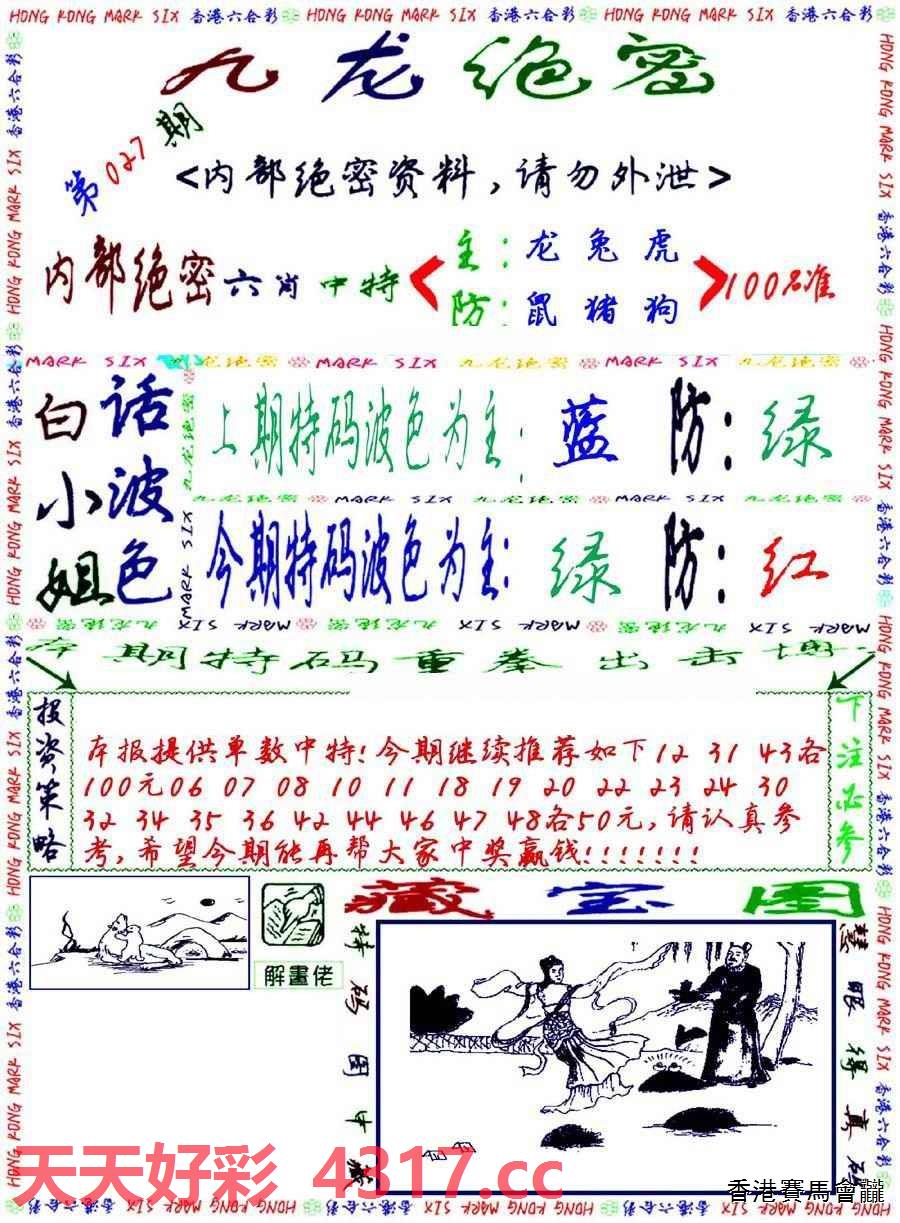 HONG KONG MARK SIX 香港六合彩 HONG KONG MARK SIX 香港六合彩 HONG KONG MARK SIX 香港六合彩
九龙绝密
第027期
<内部绝密资料,请勿外泄>
内部绝密六肖中特
主:龙兔虎
防:鼠猪狗
100%准
MARK SIX 九龙绝密 MARK SIX 九龙绝密 MARK SIX 九龙绝密
白话
小波
姐色
上期特码波色为主:蓝 防:绿
九龙绝密 MARK SIX 九龙绝密 MARK SIX 九龙绝密
今期特码波色为主:绿 防:红
MARK SIX 九龙绝密 MARK SIX 九龙绝密 MARK SIX 九龙绝密 MARK SIX
本期特码重拳出击
投资策略
本报提供单数中特!今期继续推荐如下12 31 43各
100元06 07 08 10 11 18 19 20 22 23 24 30
32 34 35 36 42 44 46 47 48各50元,请认真参
考,希望今期能再帮大家中奖赢钱!!!!!!!
下注必参
解畫佬
藏宝图
特码图中藏
慧眼得真码
天天好彩 4317.cc
香港賽馬會